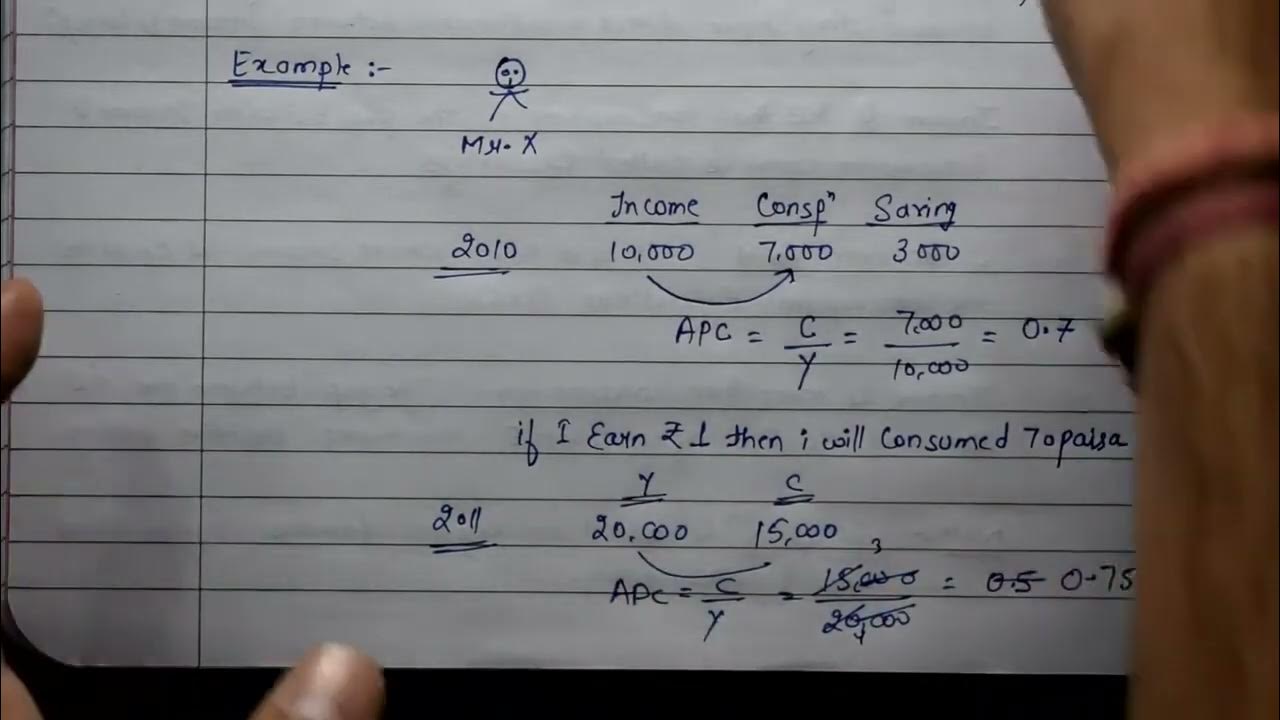 Example :-
Mr. X
Income Conspⁿ Saving
2010 10,000 7,000 3000
APC = C/Y = 7,000/10,000 = 0.7
if I Earn ₹1 then i will Consumed 70paisa
Y C
2011 20,000 15,000
APC = C/Y = 15,000/20,000 3 4 = 0.5 0.75